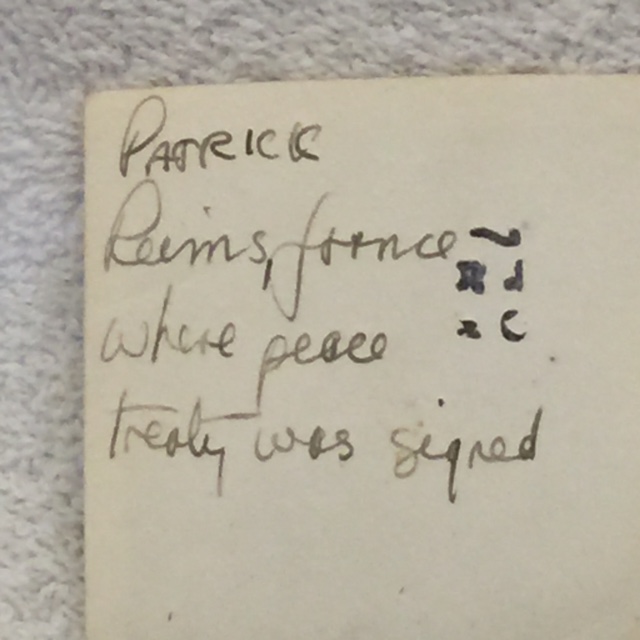 PATRICK
Reims, france
where peace
treaty was signed